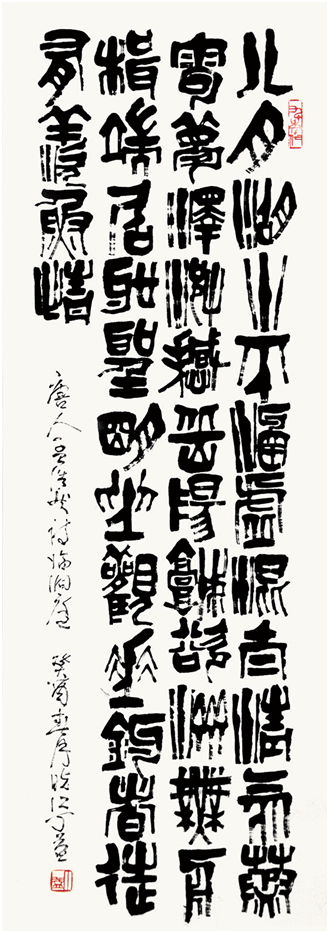 八月湖水平涵虛混太清氣蒸
雲夢澤波撼岳陽城欲濟無舟
楫端居恥聖明坐觀垂釣者徒
有羨魚情
唐人孟浩然詩臨洞庭 癸酉春月